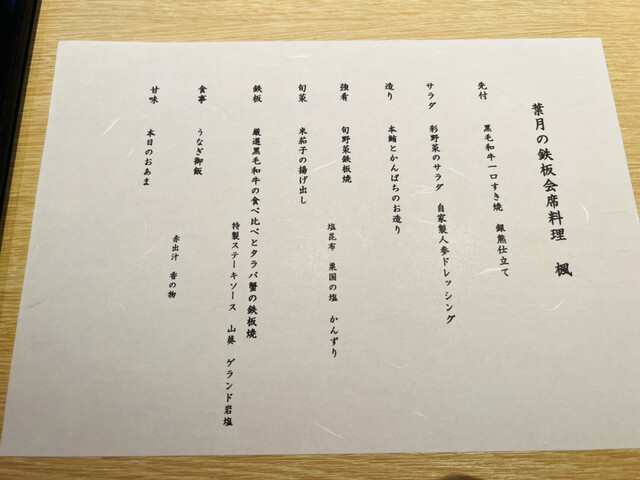 葉月の鉄板会席料理　楓
先付　黒毛和牛一口すき焼　銀熊仕立て
サラダ　彩野菜のサラダ　自家製人参ドレッシング
造り　本鮪とかんぱちのお造り
強肴　旬野菜鉄板焼
塩昆布　粟国の塩　かんずり
旬菜　米茄子の揚げ出し
鉄板　厳選黒毛和牛の食べ比べとタラバ蟹の鉄板焼
特製ステーキソース　山葵　ゲランド岩塩
食事　うなぎ御飯
赤出汁　香の物
甘味　本日のおあま